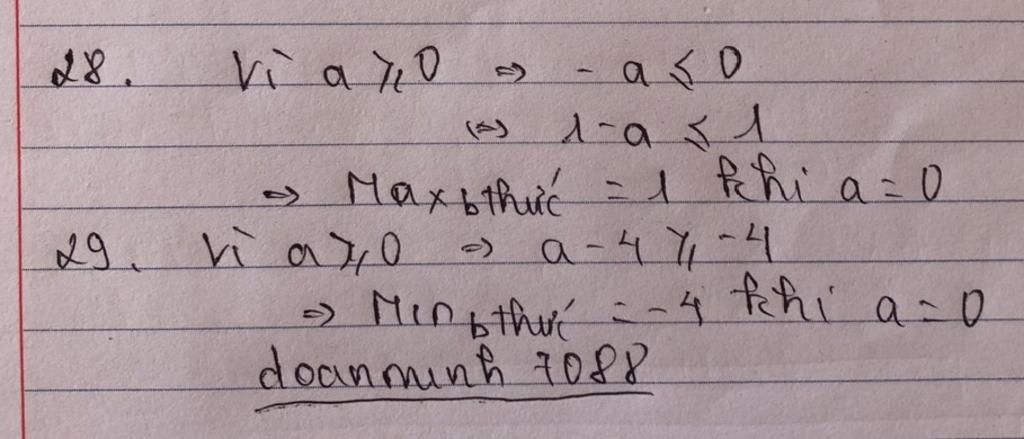 28. Vì a ≥ 0 ⇒ - a ≤ 0
⇔ 1 - a ≤ 1
⇒ Max bthức = 1 khi a = 0
29. Vì a ≥ 0 ⇒ a - 4 ≥ -4
⇒ Min bthức = -4 khi a = 0
doanminh 7088